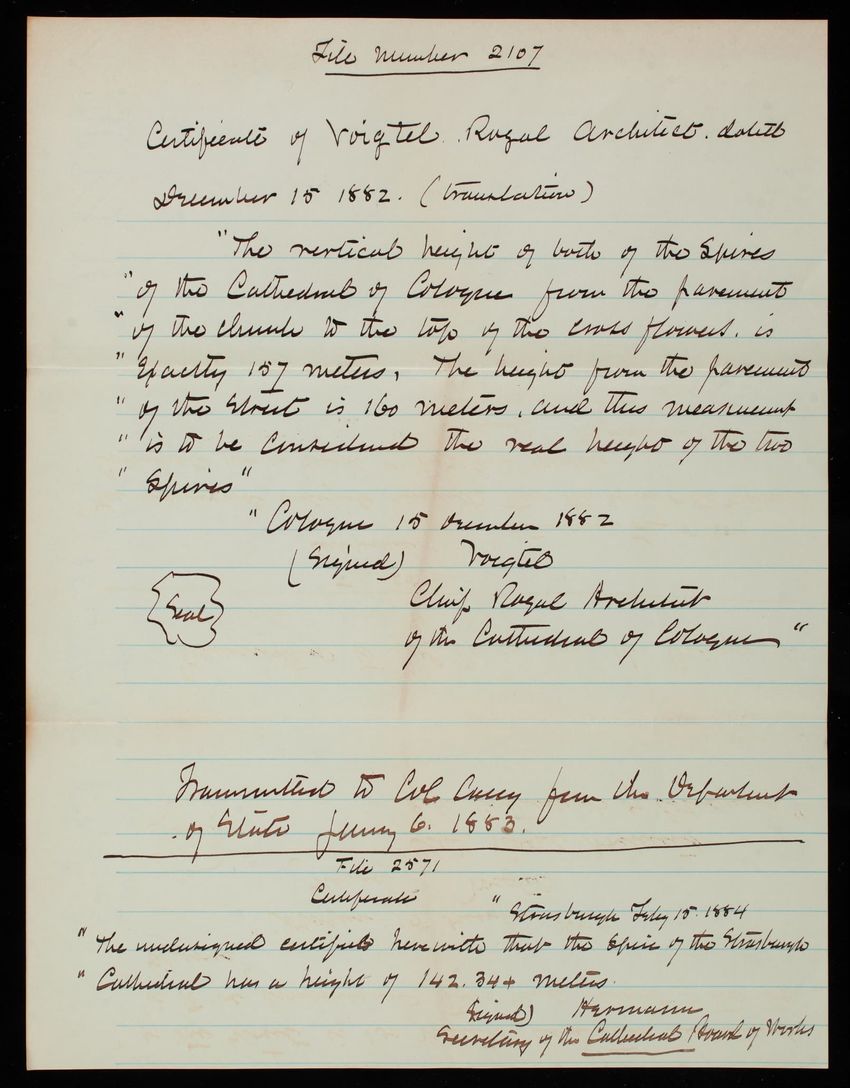 File Number 2107
Certificate of Voigtel. Royal Architect. dated
December 15 1882. (translation)
"The vertical height of both of the Spires
"of the Cathedral of Cologne from the pavement
"of the church to the top of the cross flowers. is
"Exactly 157 meters, The height from the pavement
"of the Street is 160 meters, and this measurement
"is to be Considered the real height of the two
"Spires"
"Cologne 15 December 1882
(Signed) Voigtel
Seal
Chief Royal Architect
of the Cathedral of Cologne"
Transmitted to Col Casey from the Department
of State January 6. 1883.
File 2571
Certificate
"Strasburgh Feby 15. 1884
"The undersigned certifies herewith that the Spire of the Strasburgh
"Cathedral has a height of 142.344 meters.
Signed) Hermann
Secretary of the Cathedral Board of Works